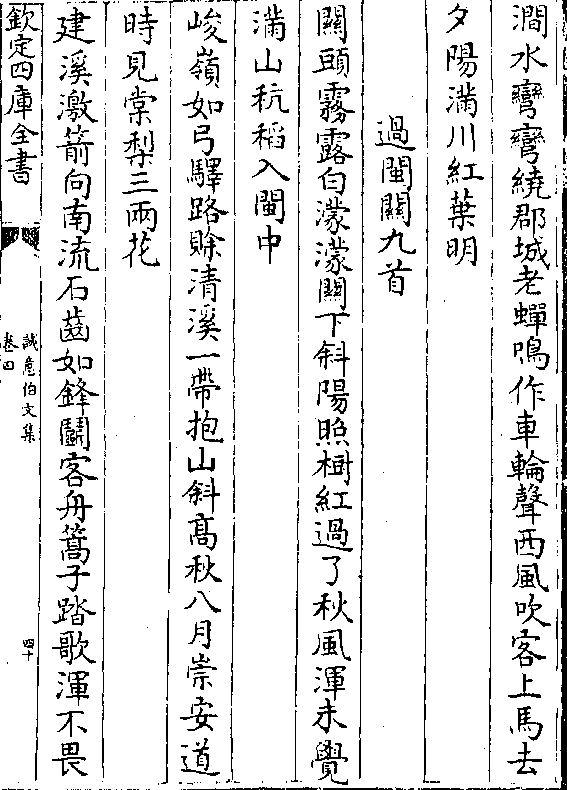 澗水彎彎繞郡城老蟬鳴作車輪聲西風吹客上馬去
夕陽滿川紅葉明
過閩關九首
關頭霧露白濛濛關下斜陽照樹紅過了秋風渾未覺
滿山秔稻入閩中
峻嶺如弓驛路賖清溪一帶抱山斜高秋八月崇安道
時見棠梨三兩花
建溪激箭向南流石齒如鋒鬬客舟篙子踏歌渾不畏
欽定四庫全書
誠意伯文集
卷四
四十